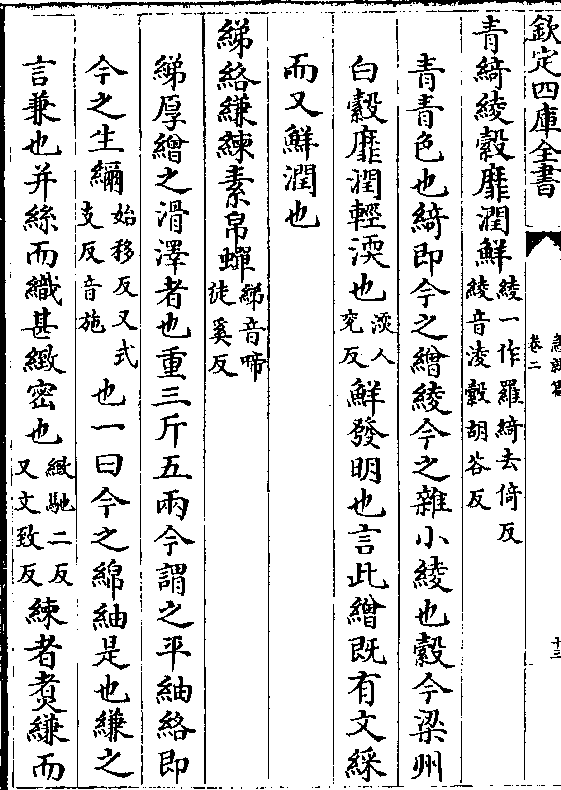 欽定四庫全書
急就篇
卷二
十三
青綺綾縠靡潤鮮綾一作羅綺去倚反綾音淩縠胡谷反
青青色也綺即今之繒綾今之雜小綾也縠今梁州
白縠靡潤輕渜也渜人兖反鮮發明也言此繒既有文綵
而又鮮潤也
綈絡縑練素帛蟬綈音啼徒奚反
綈厚繒之滑澤者也重三斤五兩今謂之平紬絡即
今之生纚始移反又式支反音施也一曰今之綿紬是也縑之
言兼也并絲而織甚緻密也緻馳二反又文致反練者煑縑而